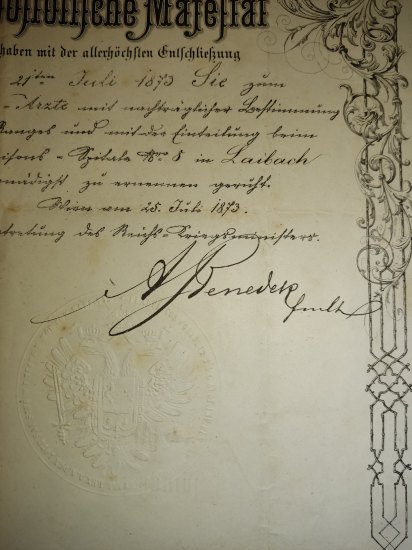 postolische Majestät
haben mit der allerhöchsten Entschließung
21ten Juli 1873 Sie zum
-Arzte mit nachträglicher Bestimmung
Ranges und mit der Einteilung beim
nisons-Spitale Nro 8 in Laibach
nädigst zu ernennen geruht.
Wien am 25. Juli 1873.
tretung des Reichs-Kriegsministers.
Benedek